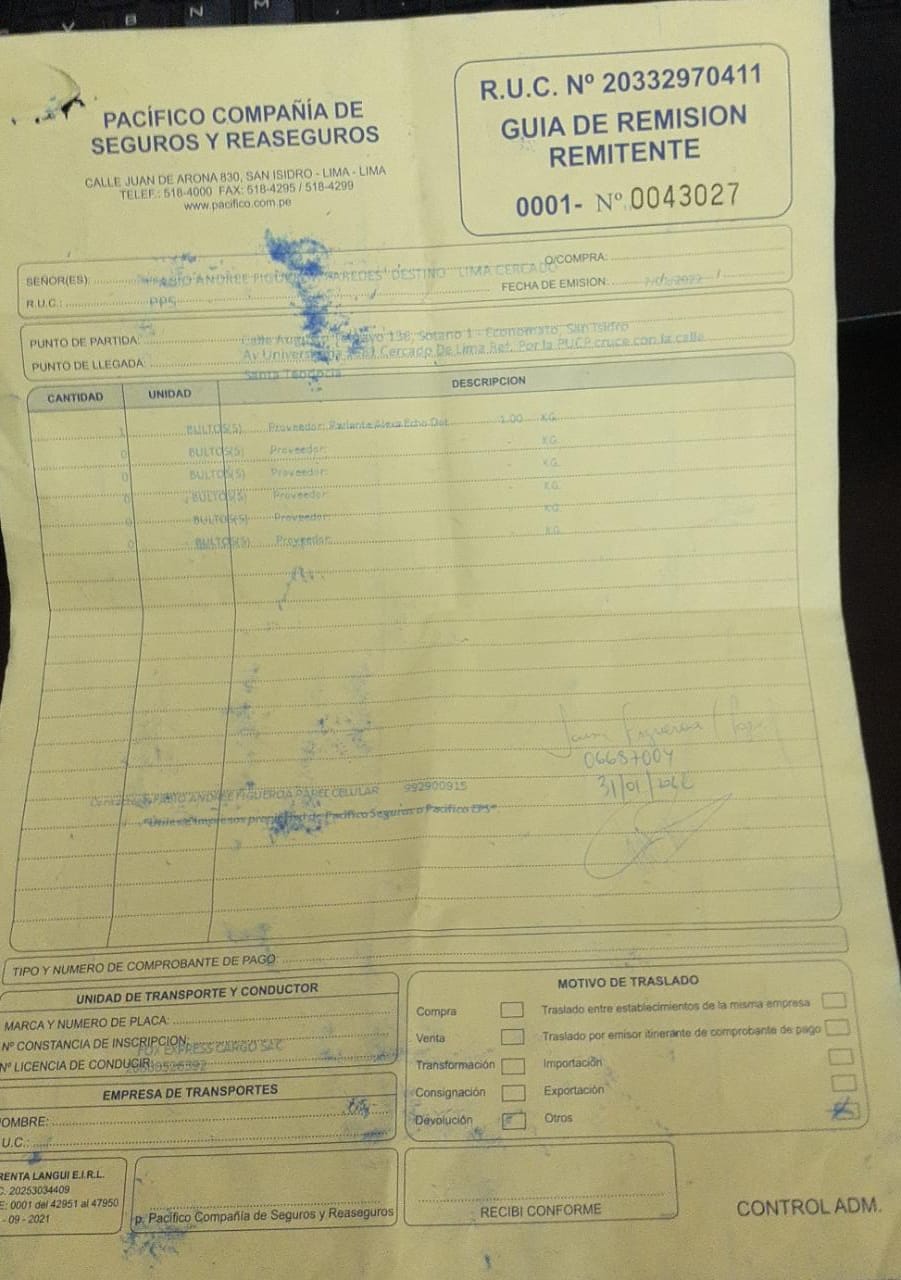 PACÍFICO COMPAÑÍA DE
SEGUROS Y REASEGUROS
CALLE JUAN DE ARONA 830, SAN ISIDRO - LIMA - LIMA
TELEF.: 518-4000 FAX: 518-4295 / 518-4299
www.pacifico.com.pe
R.U.C. Nº 20332970411
GUIA DE REMISION
REMITENTE
0001- Nº 0043027
SEÑOR(ES): ANDREE PAREDES DESTINO LIMA CERCADO
O/COMPRA:
R.U.C.: PPS
FECHA DE EMISION:
PUNTO DE PARTIDA: Calle 138, Sotano 1 - Economato, San Isidro
PUNTO DE LLEGADA: Av Cercado De Lima Ref. Por la PUCP cruce con la calle
Santa Teodocia
CANTIDAD UNIDAD DESCRIPCION
1 BULTOS(S) Proveedor: Parlante Alexa Echo Dot 1.00 KG.
0 BULTOS(S) Proveedor: KG.
0 BULTOS(S) Proveedor: KG.
0 BULTOS(S) Proveedor: KG.
0 BULTOS(S) Proveedor: KG.
0 BULTOS(S) Proveedor: KG.
06687004
31/01/2022
ANDREE FIGUEROA CELULAR 992900915
de Pacifico Seguros o Pacifico EPS".
TIPO Y NUMERO DE COMPROBANTE DE PAGO:
UNIDAD DE TRANSPORTE Y CONDUCTOR
MARCA Y NUMERO DE PLACA:
Nº CONSTANCIA DE INSCRIPCION:
EXPRESS CARGO SAC
Nº LICENCIA DE CONDUCIR:
EMPRESA DE TRANSPORTES
OMBRE:
U.C.:
MOTIVO DE TRASLADO
Compra
Venta
Transformación
Consignación
Devolución
Traslado entre establecimientos de la misma empresa
Traslado por emisor itinerante de comprobante de pago
Importación
Exportación
Otros
RENTA LANGUI E.I.R.L.
C. 20253034409
E: 0001 del 42951 al 47950
- 09 - 2021
p. Pacífico Compañía de Seguros y Reaseguros
RECIBI CONFORME
CONTROL ADM.